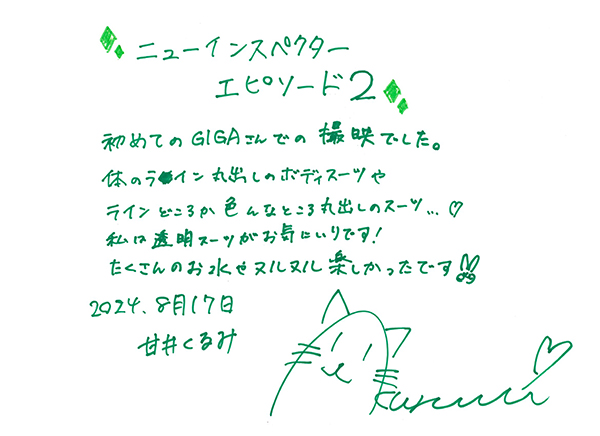 ニューインスペクター
エピソード2
初めてのGIGAさんでの撮映でした。
体のライン丸出しのボディスーツや
ラインどころか色んなところ丸出しのスーツ...♡
私は透明スーツがお気にいりです!
たくさんのお水やヌルヌル楽しかったです
2024.8月17日
甘井くるみ
Kurumi